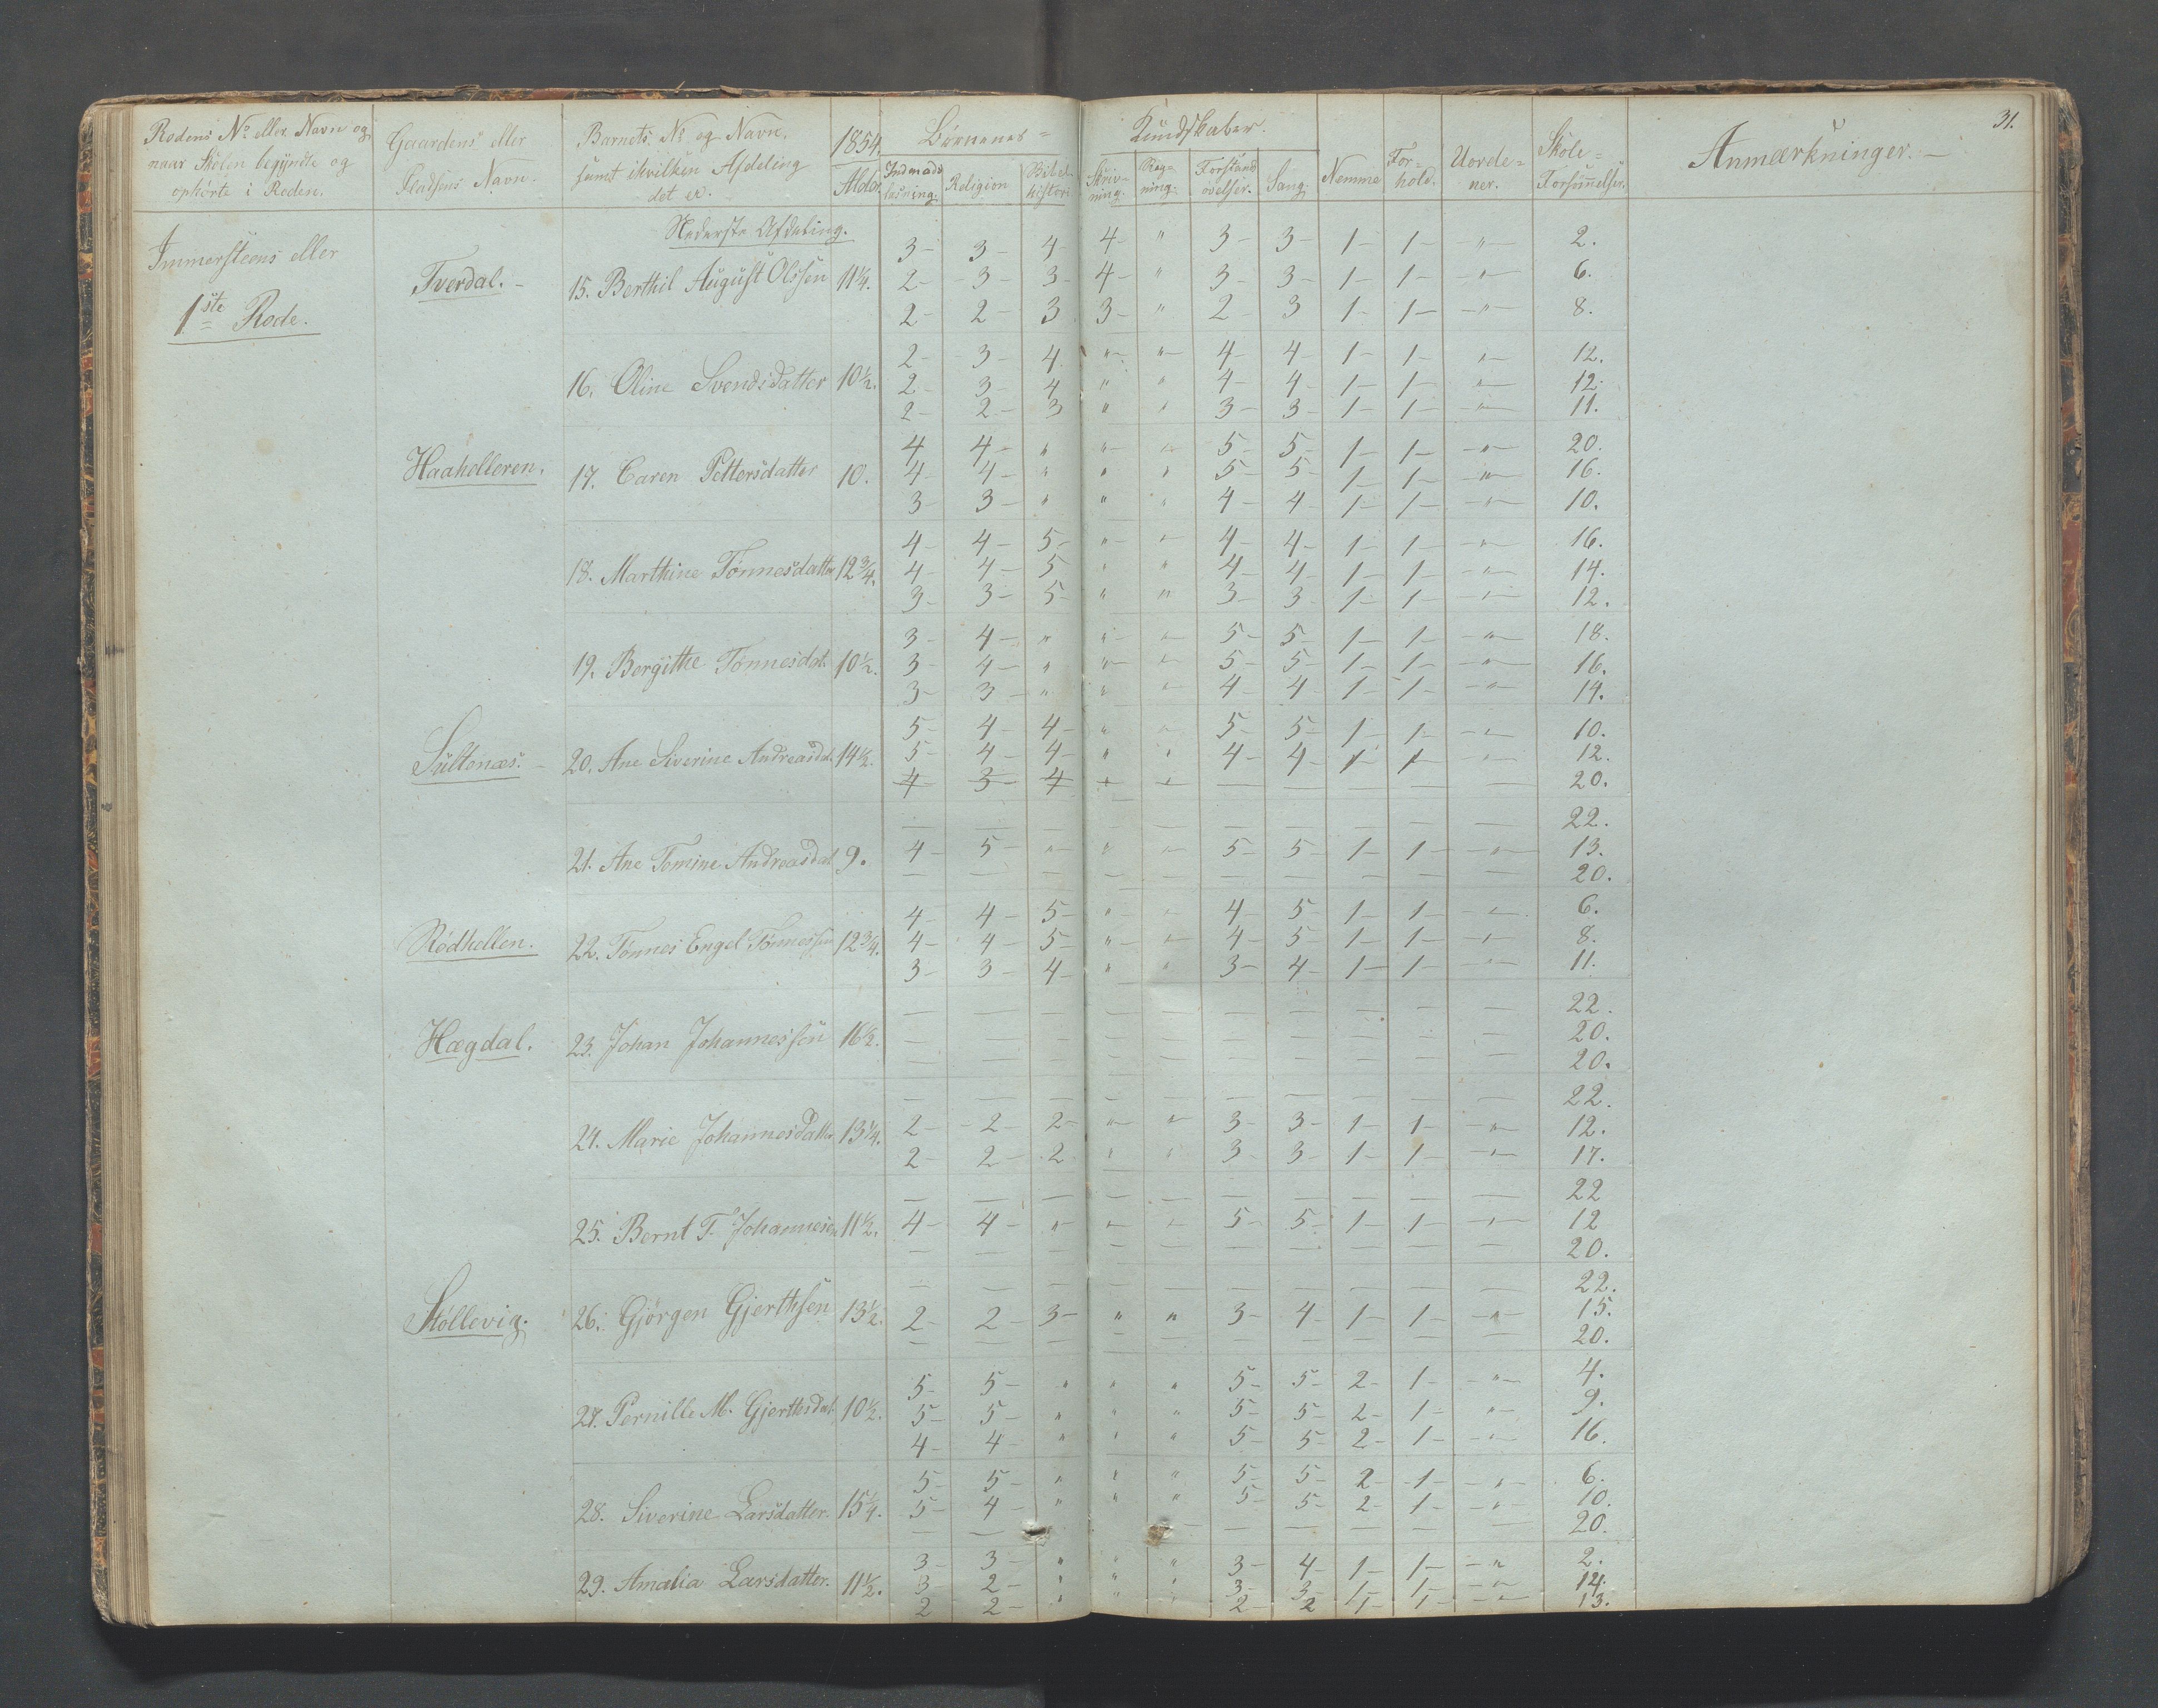 31.
Rodens No. eller Navn og naar Skolen begyndte og ophørte i Roden. | Gaardens eller Pladsens Navn. | Barnets No. og Navn, samt ihvilken Afdeling det er. | 1854. Alder | Børnenes = Kundskaber. Indenads læsning. | Religion | Bibel-histori | Skriv-ning. | Reg-ning. | Forstands øvelser. | Sang. | Nemme | For-hold. | Uorde-ner. | Skole-Forsømmelser. | Anmærkninger.
Nederste Afdeling.
3 - 3 - 4 - 4 - " 3 - 3 - 1 - 1 - " 2.
Immersteens eller
1ste Rode.
Tverdal. - 15. Berthil August Olssen 11 1/4. 2 - 3 - 3 - 4 - " 3 - 3 - 1 - 1 - " 6.
2 - 2 - 3 3 - " 2 - 3 1 - 1 - " 8.
2 - 3 - 4 " " 4 - 4 - 1 - 1 - " 12.
16. Oline Svendsdatter 10 1/2. 2 - 3 - 4 " " 4 - 4 - 1 - 1 - " 12.
2 - 2 - 3 " " 3 - 3 - 1 - 1 - " 11.
4 4 - " " " 5 - 5 - 1 - 1 - " 20.
Haahelleren. 17. Caren Pettersdatter 10. 4 - 4 - " " " 5 - 5 - 1 - 1 - " 16.
3 - 3 - " " " 4 - 4 - 1 - 1 - " 10.
4 - 4 - 5 - " " 4 - 4 - 1 - 1 - " 16.
18. Marthine Tønnesdatter 12 3/4. 4 - 4 - 5 " " 4 - 4 - 1 - 1 - " 14.
3 - 3 - 5 - " " 3 - 3 - 1 - 1 - " 12.
3 - 4 - " " " 5 - 5 - 1 - 1 - " 18.
19. Bergitthe Tønnesdat. 10 1/2. 3 - 4 - " " " 5 - 5 - 1 - 1 - " 16.
3 - 3 - " " " 4 - 4 - 1 - 1 - " 14.
5 - 4 - 4 - " " 5 - 5 - 1 - 1 - " 10.
Sultenæs. - 20. Ane Siverine Andreasdat. 14 1/2. 5 - 4 - 4 - " " 4 - 4 - 1 - 1 - " 12.
4 3 - 4 — — — — — — — 20.
— — — — — — — — — — 22.
21. Ane Tomine Andreasdat 9. 4 - 5 - " " " 5 - 5 - 1 - 1 - " 13.
— — — — — — — — — — 20.
4 - 4 - 5 - " " 4 - 5 - 1 - 1 - " 6.
Rødhellen. 22. Tønnes Engel Tønnessen 12 3/4. 4 - 4 - 5 - " " 4 - 5 - 1 - 1 - " 8.
3 - 3 - 4 - " " 3 - 4 - 1 - 1 - " 11.
— — — — — — — — — — 22.
Hægdal. 23. Johan Johannessen 16 1/2. — — — — — — — — — — 20.
— — — — — — — — — — 20.
— — — — — — — — — — 22.
24. Marie Johannesdatter 13 1/4. 2 - 2 - 2 - " " 3 - 3 - 1 - 1 - " 12.
2 - 2 - 2 " " 3 - 3 - 1 - 1 - " 17.
— — — — — — — — — — 22
25. Bernt T. Johannesen 11 1/2. 4 - 4 - " " " 5 - 5 - 1 - 1 - " 12
— — — — — — — — — — 20.
— — — — — — — — — — 22.
Støllevig. 26. Gjørgen Gjerthsen 13 1/2. 2 - 2 - 3 - " " 3 - 4 - 1 - 1 - " 15.
— — — — — — — — — — 20.
5 - 5 - " " " 5 - 5 - 2 - 1 - " 4.
27. Pernille M. Gjerthsdat. 10 1/2. 5 - 5 - " " " 5 - 5 - 2 - 1 - " 9.
4 - 4 - " " " 5 - 5 - 2 - 1 - " 16.
5 - 5 - " " " 5 - 5 - 2 - 1 - " 6.
28. Siverine Larsdatter. 15 1/4. 5 - 4 - " " " 5 - 5 - 2 - 1 - " 10.
— — — — — — — — 20.
3 - 3 - " " " 3 - 4 - 1 - 1 - " 2.
29. Amalia Larsdatter. 11 1/2. 3 - 2 - " " " 3 - 3 - 1 - 1 - " 14.
2 2 - " " " 2 - 2 1 - 1 - " 13.